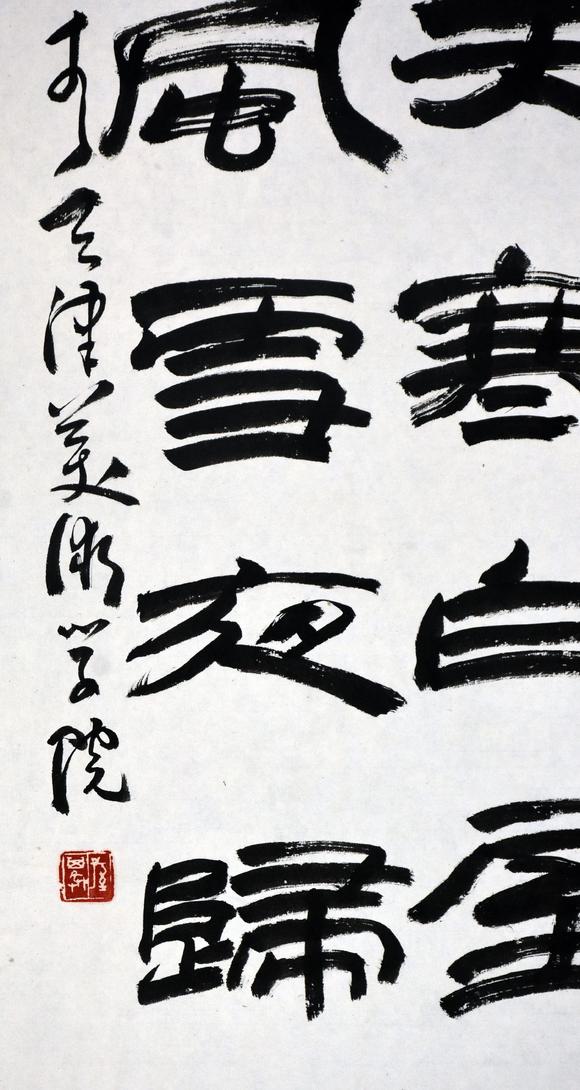 天寒白屋
風雪夜歸
於天津美術学院